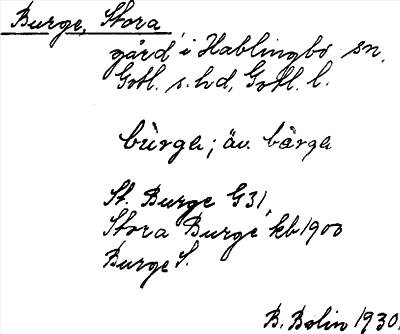 Burge, Stora
gård i Hablingbo sn,
Gotl. s. hd, Gotl. l.
bùrga; äv. bårga
St. Burge G31,
Stora Burge kb 1900
Burge S.
B. Bolin 1930.